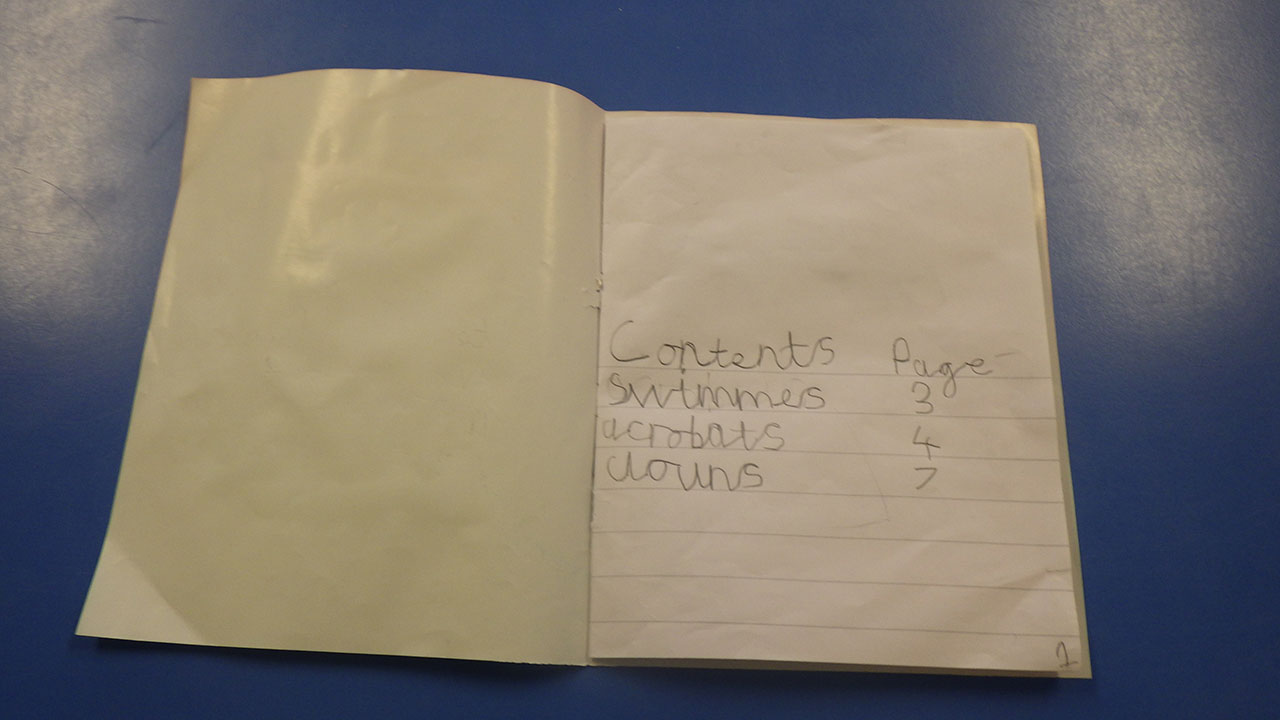 Contents Page
swimmes 3
acrobats 4
clouns 7
1